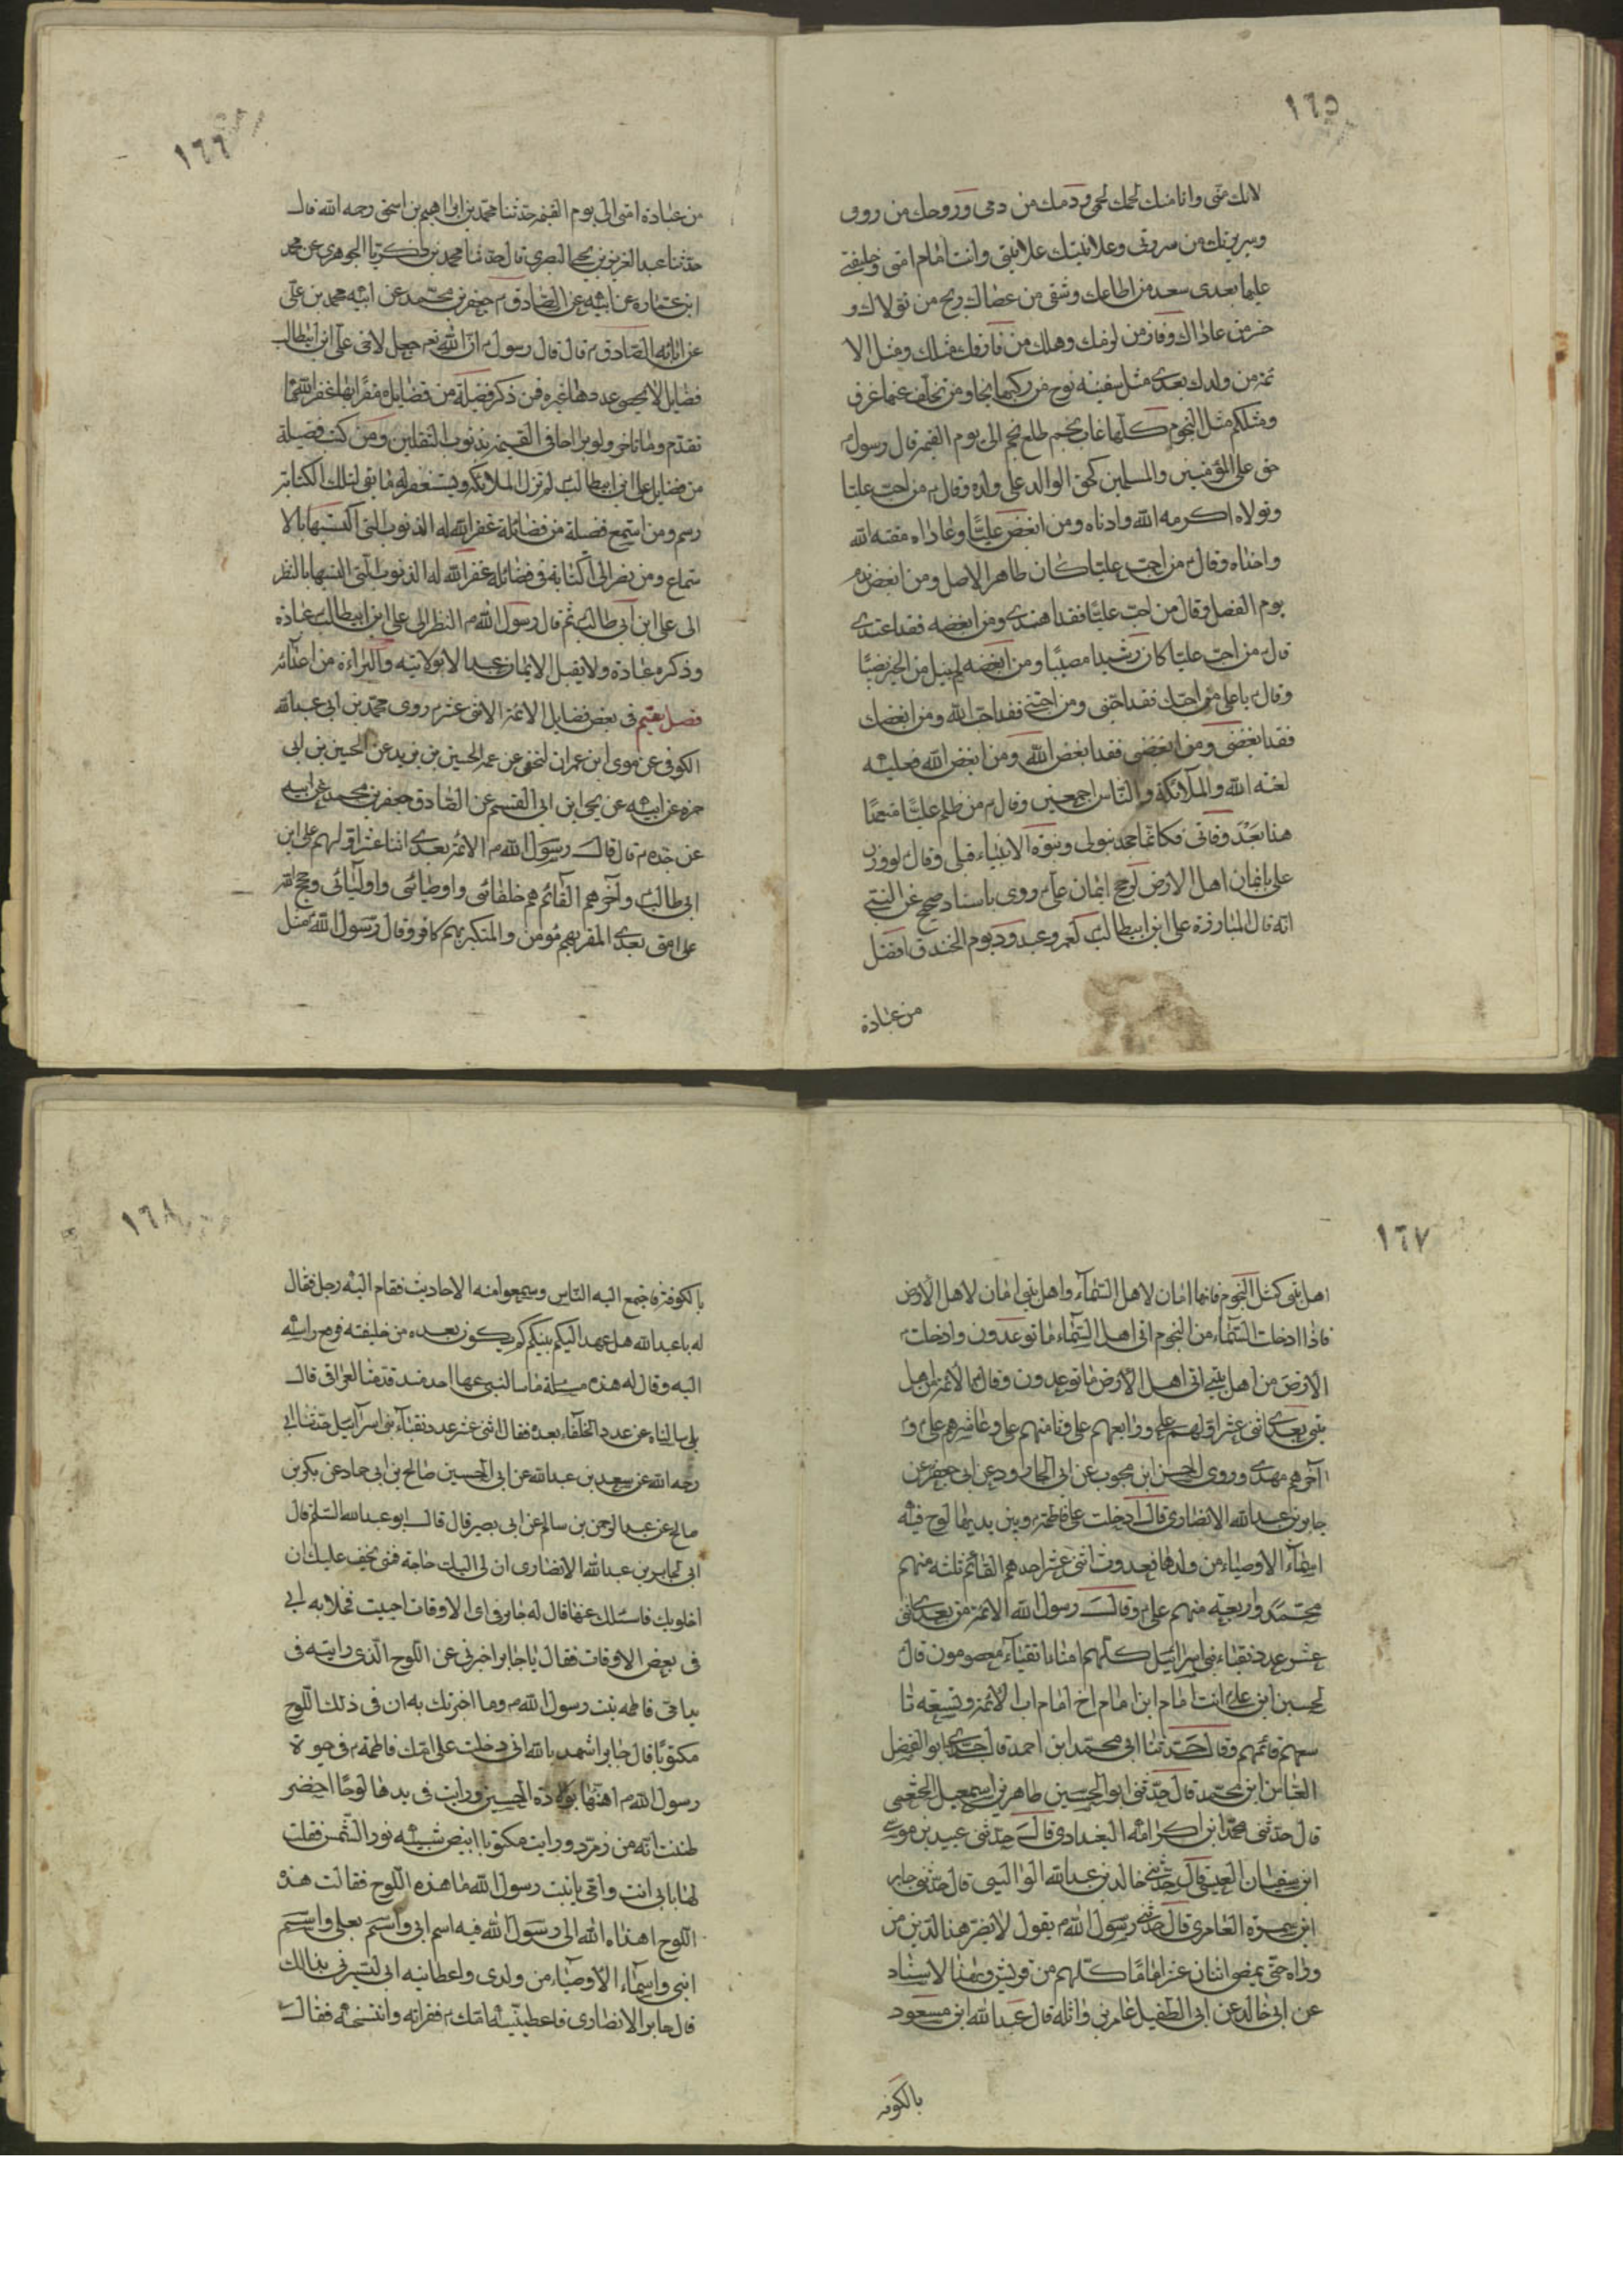 ١٦٥
لانك منى وانا منك لحمك لحمى ودمك من دمى وروحك من روحى
وسريرتك من سريرتى وعلانيتك علانيتى وانت امام امتى وخليفتى
عليها بعدى سعد من اطاعك وشقى من عصاك ربح من تولاك و
خسر من عاداك وفاز من لزمك وهلك من فارقك مثلك ومثل الا
ئمة من ولدك بعدى مثل سفينة نوح من ركبها نجا ومن تخلف عنها غرق
ومثلكم مثل النجوم كلما غاب نجم طلع نجم الى يوم القيمة قال رسول
حق على المؤمنين والمسلمين كحق الوالد على ولده وقال من احب عليا
وتولاه اكرمه الله وادناه ومن ابغض عليا وعاداه مقته الله
واخزاه وقال من احب عليا كان طاهر الاصل ومن ابغض ندم
يوم الفصل وقال من احب عليا فقد اهتدى ومن ابغضه فقد اعتدى
قال من احب عليا كان رشيدا مصيبا ومن ابغضه لم ينل من الخير نصيبا
وقال يا على من احبك فقد احبنى ومن احبنى فقد احب الله ومن ابغضك
فقد ابغضنى ومن ابغضنى فقد ابغض الله ومن ابغض الله فعليه
لعنة الله والملائكة والناس اجمعين وقال من ظلم عليا مقعدا
هذا بعد وفاتى فكانما جحد نبوتى ونبوة الانبياء قبلى وقال لو وزن
على بايمان اهل الارض لرجح ايمان على روى باسناد صحيح عن النبى
انه قال لمبارزة على ابن ابيطالب لعمرو عبدود يوم الخندق افضل
من عبادة
١٦٦
من عبادة امتى الى يوم القيمة حدثنا محمد بن ابراهيم بن اسحق رحمه الله قال
حدثنا عبد العزيز بن يحيى البصرى قال حدثنا محمد بن زكريا الجوهرى عن محمد
ابن عماره عن ابيه عن الصادق جعفر بن محمد عن ابيه محمد بن على
عن ابائه الصادق قال قال رسول ان الله تعم جعل لاخى على ابن ابيطالب
فضايل لا يحصى عددها غيره فمن ذكر فضيلة من فضايله مقرا بها غفر الله ما
تقدم وما تاخر ولو براحا فى القيمة بذنوب الثقلين ومن كتب فضيلة
من فضايل على ابن ابيطالب لم تزل الملائكة ويستغفر له ما بقى لتلك الكتابة
رسم ومن استمع فضيلة من فضائله غفر الله له الذنوب التى اكتسبها بالا
ستماع ومن نظر الى الكتابة فى فضائله غفر الله له الذنوب التى اكتسبها بالنظر
الى على ابن ابى طالب ثم قال رسول الله النظر الى على ابن ابيطالب عبادة
وذكره عبادة ولا يقبل الايمان عبد الا بولايته والبراءة من اعدائه
فصل يقيم فى بعض فضايل الائمة الاثنى عشر روى محمد بن ابى عبد الله
الكوفى عن موسى ابن عمران النخعى عن عمه الحسين بن يزيد عن الحسين بن ابى
حمزه عن ابيه عن يحيى ابن ابى القسم عن الصادق جعفر بن محمد عن ابيه
عن جده قال قال رسول الله الائمة بعدى اثنا عشر اولهم على ابن
ابى طالب وآخرهم القائم هم خلفائى واوصيائى واوليائى وحجج الله
على امتى بعدى المقر بهم مؤمن والمنكر بهم كافر وقال رسول الله مثل
١٦٧
اهل بيتى كمثل النجوم فانما امان لاهل السماء واهل بيتى امان لاهل الارض
فاذا ادخلت السماء من النجوم اتى اهل السماء ما توعدون وادخلت
الارض من اهل بيتى اتى اهل الارض ما توعدون وقال الائمة من اهل
بيتى بعدى اثنى عشر اولهم على ورابعهم على وثامنهم على وعاشرهم على و
آخرهم مهدى وروى الحسن ابن محبوب عن ابى الجارود عن ابى جعفر عن
جابر بن عبد الله الانصارى قال دخلت على فاطمة وبين يديها لوح فيه
اسماء الاوصياء من ولدها فعددت اثنى عشر احدهم القائم ثلثه منهم
محمد واربعه منهم على وقال رسول الله الائمة من بعدى اثنى
عشر عدد نقباء بنى اسرائيل كلهم امناء نقباء معصومون قال
لحسين ابن على انت امام ابن امام اخ امام اب الائمة وتسعه تا
سعهم قائمهم وقال حدثنا ابى محمد ابن احمد قال حدثنى ابو الفضل
العباس ابن محمد قال حدثنى ابو الحسين طاهر بن اسمعيل الخثعمى
قال حدثنى محمد ابن اكرامه البغدادى قال حدثنى عبيد بن موسى
ابن سفيان العبسى قال حدثنى خالد بن عبد الله الوالبى قال حدثنى جابر
ابن سمرة العامرى قال حدثنى رسول الله يقول لا يضر هذا الدين من
وراه حتى يمضى اثنان عشر اماما كلهم من قريش وبهذا الاسناد
عن ابى خالد عن ابى الطفيل عامر بن واثله قال عبد الله ابن مسعود
بالكوفه
١٦٨
بالكوفة فاجتمع اليه الناس وسمعوا منه الاحاديث فقام اليه رجل فقال
له يا عبد الله هل عهد اليكم نبيكم كم يكون بعده من خليفته فرفع راسه
اليه وقال له هذه مسئلة ما سالنى عنها احد منذ قدمنا العراق قال
بلى سالناه عن عدد الخلفاء بعده فقال اثنى عشر عدد نقباء بنى اسرآئيل حدثنا ابى
رحمه الله عن سعد بن عبد الله عن ابى الحسين صالح بن ابى حماد عن بكر بن
صالح عن عبد الرحمن بن سالم عن ابى بصير قال قال ابو عبد الله السلم قال
ابى لجابر بن عبد الله الانصارى ان لى اليك حاجة فمتى يخف عليك ان
اخلو بك فاسئلك عنها قال له جابر فى اى الاوقات احببت فخلا به ابى
فى بعض الاوقات فقال يا جابر اخبرنى عن اللوح الذى رايته فى
يد امى فاطمه بنت رسول الله وما اخبرتك به ان فى ذلك اللوح
مكتوبا قال جابر اشهد بالله انى دخلت على امك فاطمة فى حيوة
رسول الله اهنئها بولادة الحسين ورايت فى يدها لوحا اخضر
ظننت انه من زمرد ورايت مكتوبا ابيض شبيه نور الشمس فقلت
لها بابى انت وامى يا بنت رسول الله ما هذه اللوح فقالت هذه
اللوح اهداه الله الى رسول الله فيه اسم ابى واسم بعلى واسم
ابنى واسماء الاوصياء من ولدى واعطانيه ابى ليسرنى بذالك
قال جابر الانصارى فاعطيتنيه امك فقراته وانتسخه فقال